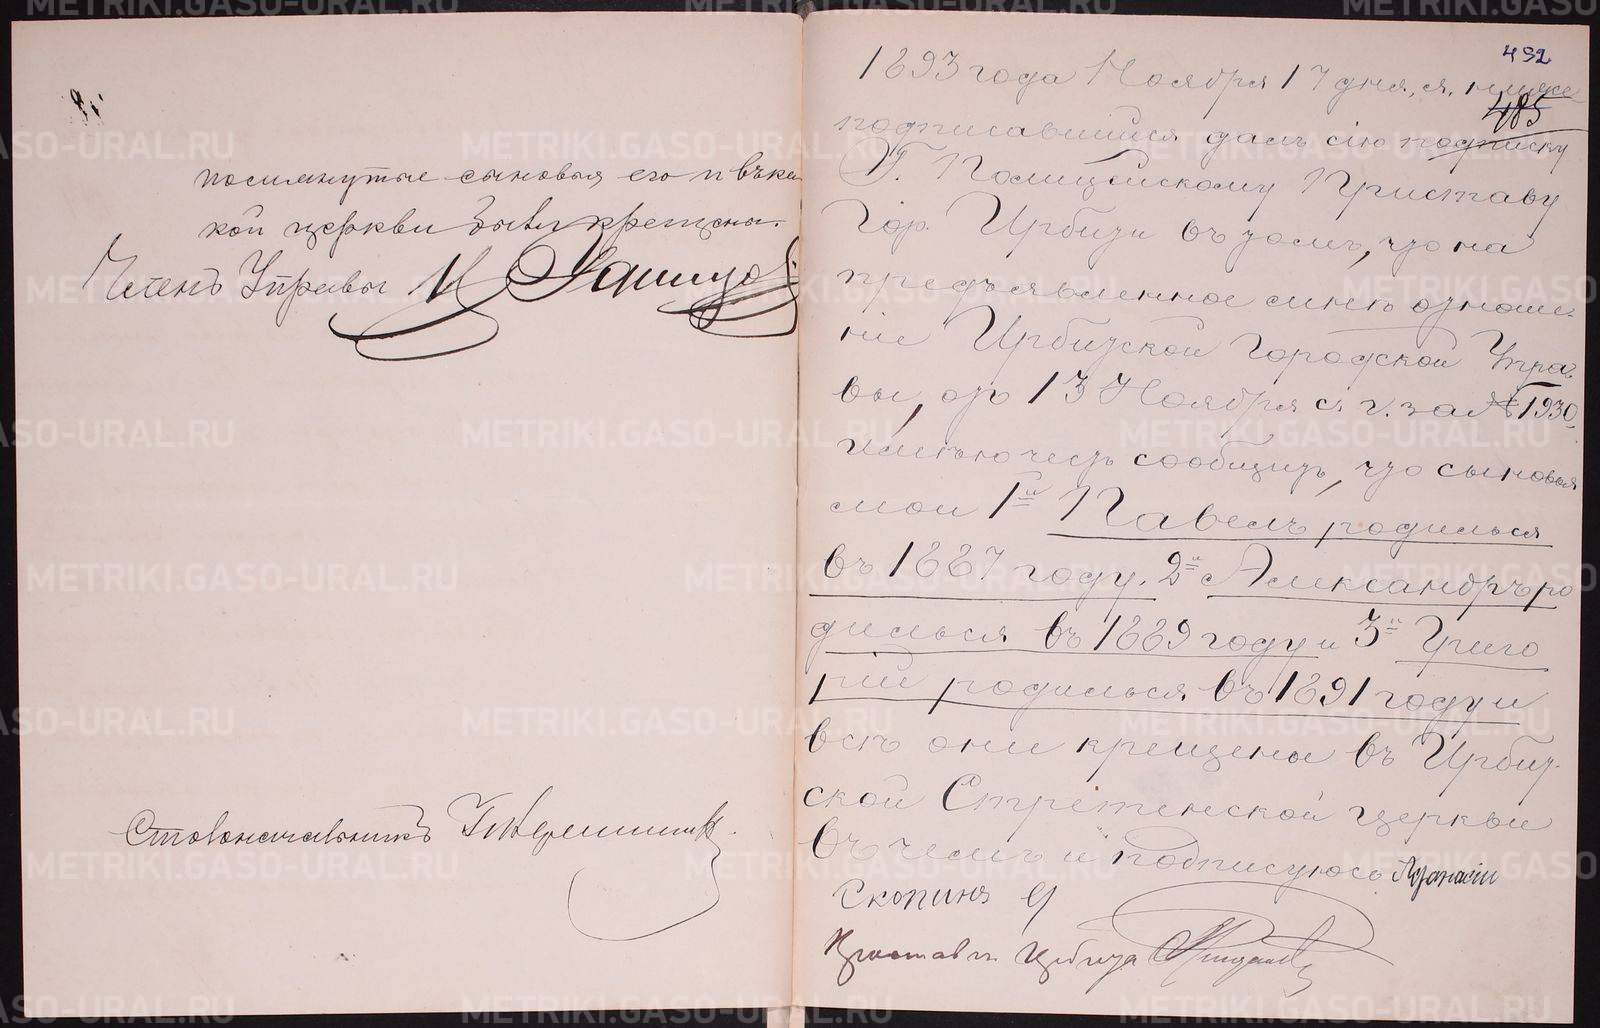 посимянутые сыновья его и въ ка
кой церкви были крещены.
Членъ Управы
Столоначальникъ
492
1893 года Ноября 17 дня, я, ниже
485
подписавшійся далъ сію подписку
Г. Полицейскому Приставу
Гор. Ирбита въ томъ, что на
предъявленное мнѣ отноше-
ніе Ирбитской Городской Упра-
вы, отъ 13 Ноября с. г. за № 1930,
имѣю честь сообщить, что сыновья
мои 1й Павелъ родилься
въ 1887 году. 2й Александръ ро
дилься въ 1889 году и 3й Григо
рій родилься въ 1891 году и
всѣ они крещены въ Ирбит-
ской Стрѣтенской церкви
въ чемъ и подписуюсь Афанасіи
Скопинъ
Приставъ Ирбита